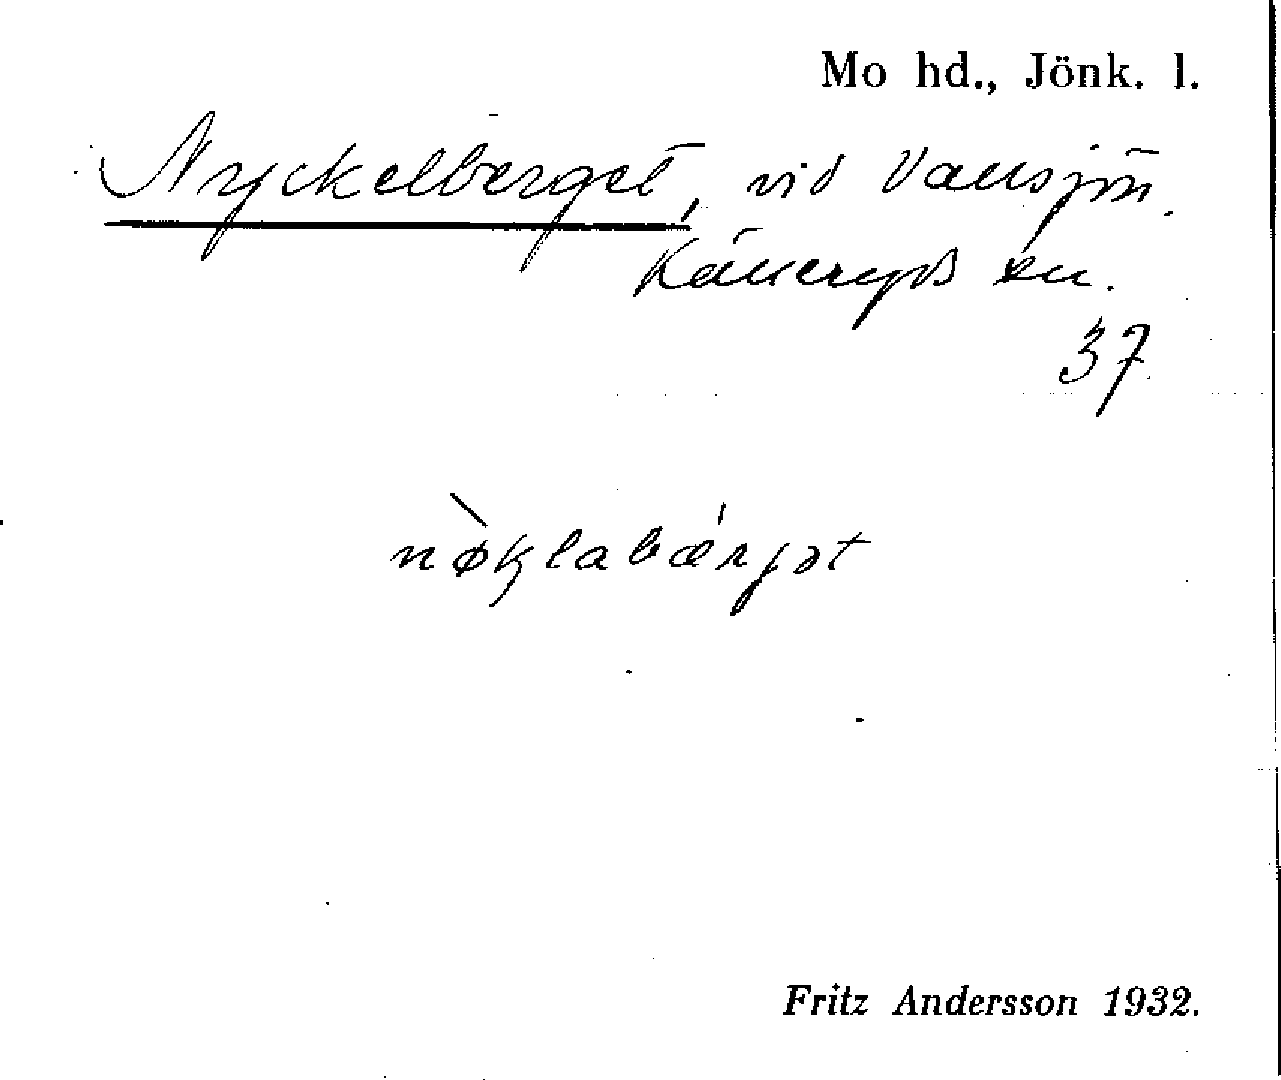 Mo hd., Jönk. l.
Nyckelberget, vid Vallsjön.
Källeryds sn.
37
nøklabærjət
Fritz Andersson 1932.